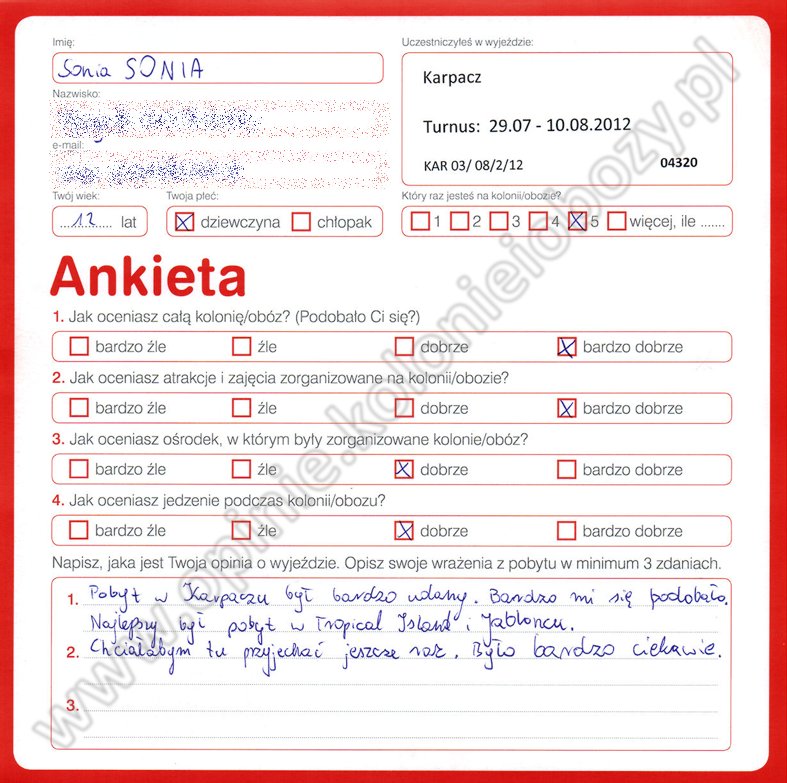 Imię:
Sonia SONIA
Uczestniczyłeś w wyjeździe:
Karpacz
Turnus: 29.07 - 10.08.2012
KAR 03/ 08/2/12 04320
Nazwisko:
e-mail:
Twój wiek:
12 lat
Twoja płeć:
dziewczyna chłopak
Który raz jesteś na kolonii/obozie?
1 2 3 4 5 więcej, ile .......
Ankieta
1. Jak oceniasz całą kolonię/obóz? (Podobało Ci się?)
bardzo źle źle dobrze bardzo dobrze
2. Jak oceniasz atrakcje i zajęcia zorganizowane na kolonii/obozie?
bardzo źle źle dobrze bardzo dobrze
3. Jak oceniasz ośrodek, w którym były zorganizowane kolonie/obóz?
bardzo źle źle dobrze bardzo dobrze
4. Jak oceniasz jedzenie podczas kolonii/obozu?
bardzo źle źle dobrze bardzo dobrze
Napisz, jaka jest Twoja opinia o wyjeździe. Opisz swoje wrażenia z pobytu w minimum 3 zdaniach.
1. Pobyt w Karpaczu był bardzo udany. Bardzo mi się podobało.
Najlepszy był pobyt w Tropical Island i Jabloncu.
2. Chciałabym tu przyjechać jeszcze raz. Było bardzo ciekawie.
3.
www.opinie.kolonieiobozy.pl